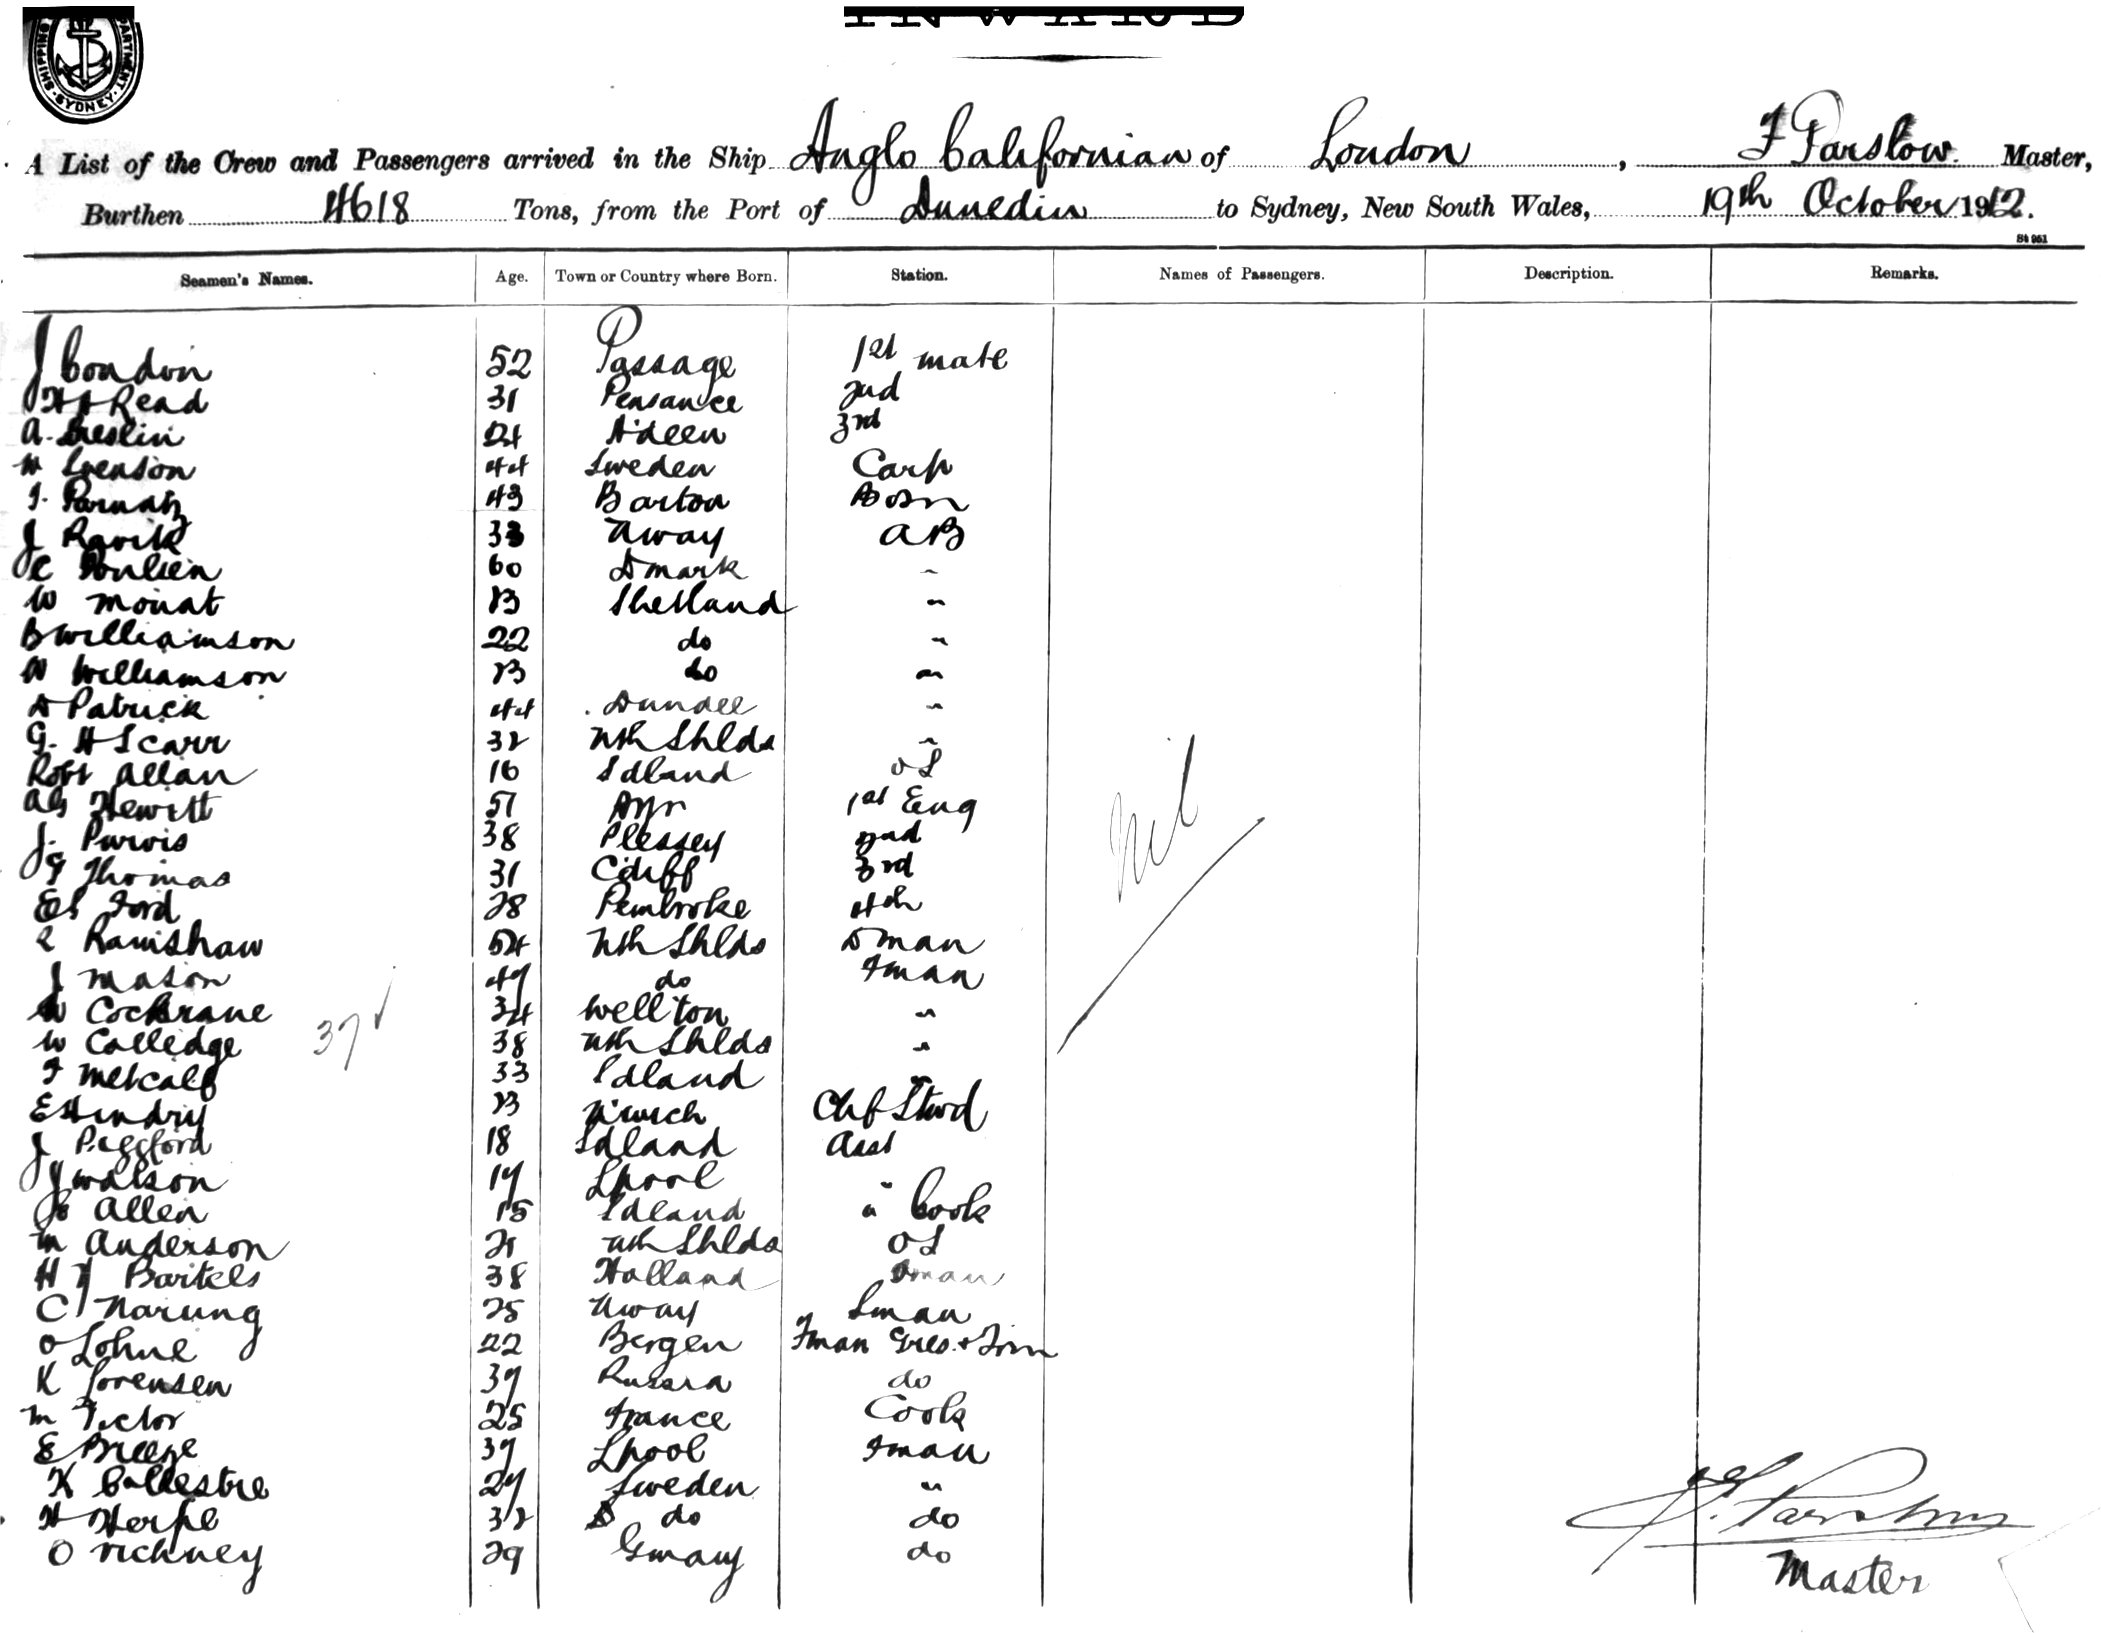 SHIPPING DEPARTMENT SYDNEY
INWARD
A List of the Crew and Passengers arrived in the Ship Anglo Californian of London, F Parslow. Master,
Burthen 4618 Tons, from the Port of Dunedin to Sydney, New South Wales, 19th October 1912.
St 961
Seamen's Names. Age. Town or Country where Born. Station. Names of Passengers. Description. Remarks.
J Condon 52 Passage 1st mate
Read 31 Pensance 2nd
A. 24 A'deen 3rd
Svenson 44 Sweden Carp
43 Barton Bosn
J Ravik 33 Nway AB
C Poulsen 60 Dmark "
W Mouat 23 Shetland "
B Williamson 22 do "
W Williamson 23 do "
D Patrick 44 Dundee "
G. H Scarr 32 Nth Shlds "
Robt Allan 16 Sdland OS
AG Hewitt 51 Ayr 1st Eng
J. Purvis 38 Plessey 2nd
G Thomas 31 C'diff 3rd
ES Ford 28 Pembroke 4th
Ramshaw 54 Nth Shlds Dman
J Mason 49 do Fman
W Cochrane 34 Well'ton "
W Colledge 38 Nth Shlds "
37 ✓
F Metcalf 33 Sdland "
E Hindry 23 N'wich Chf Stwd
J Peggford 18 Sdland Asst
J Watson 17 Lpool "
Allen 15 Sdland " Cook
M Anderson 21 Nth Shlds OS
H J Bartels 38 Holland Dman
C Narung 25 Nway Sman
O Lohne 22 Bergen Fman Gres. + Trim
K Sorensen 37 Russia do
M Victor 25 France Cook
E Breeze 37 Lpool Fman
K Ballestre 27 Sweden "
H Herpe 32 do do
O Richney 29 Gmany do
Nil
F. Parslow
Master